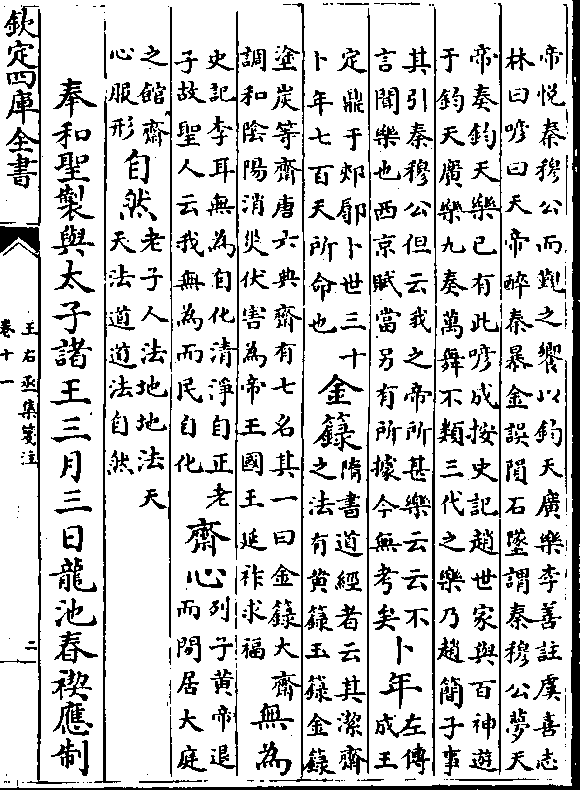 帝悅秦穆公而覲之饗以鈞天廣樂李善註虞喜志
林曰喭曰天帝醉秦暴金誤隕石墜謂秦穆公夢天
帝奏鈞天樂已有此喭成按史記趙世家與百神遊
于鈞天廣樂九奏萬舞不類三代之樂乃趙簡子事
其引秦穆公但云我之帝所甚樂云云不
言聞樂也西京賦當另有所據今無考矣
卜年
左傳
成王
定鼎于郟鄏卜世三十
卜年七百天所命也
金籙
隋書道經者云其潔齋
之法有黄籙玉籙金籙
塗炭等齋唐六典齋有七名其一曰金籙大齋
調和陰陽消災伏害為帝王國王延祚求福
無為
史記李耳無為自化清淨自正老
子故聖人云我無為而民自化
齋心
列子黄帝退
而閒居大庭
之館齋
心服形
自然
老子人法地地法天
天法道道法自然
奉和聖製與太子諸王三月三日龍池春禊應制
欽定四庫全書
王右丞集箋注
卷十一
二